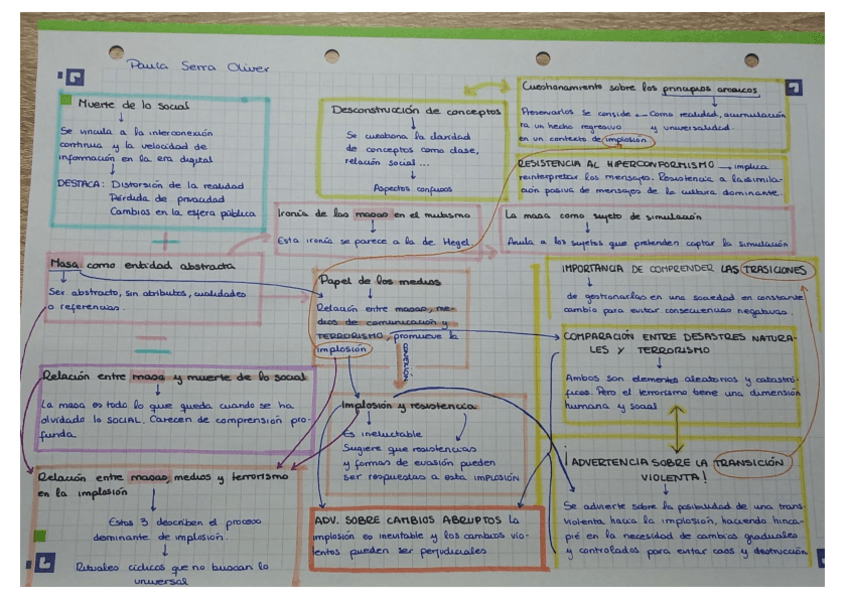 Paula Serra Oliver
Muerte de lo social
Se vincula a la interconexión
continua y la velocidad de
información en la era digital
DESTACA: Distorsión de la realidad
Pérdida de privacidad
Cambios en la esfera pública
Desconstrucción de conceptos
Se cuestiona la claridad
de conceptos como clase,
relación social ...
Aspectos confusos
Cuestionamiento sobre los principios arcaicos
Preservarlos se conside
ra un hecho regresivo
en un contexto de implosión
Como realidad, acumulación
y universalidad.
RESISTENCIA AL HIPERCONFORMISMO → implica
reinterpretar los mensajes. Resistencia a la simila-
ción pasiva de mensajes de la cultura dominante.
Ironía de las masas en el mutismo
Esta ironía se parece a la de Hegel.
La masa como sujeto de simulación
Anula a los sujetos que pretenden captar la simulación
Masa como entidad abstracta
Ser abstracto, sin atributos, cualidades
o referencias.
Papel de los medios
Relación entre masas, me-
dios de comunicación y
TERRORISMO, promueve la
implosión
IMPORTANCIA DE COMPRENDER LAS TRASICIONES
de gestionarlas en una sociedad en constante
cambio para evitar consecuencias negativas.
COMPARACIÓN ENTRE DESASTRES NATURA-
LES Y TERRORISMO
Ambos son elementos aleatorios y catastró-
ficos. Pero el terrorismo tiene una dimensión
humana y social
Relación entre masa y muerte de lo social
La masa es todo lo que queda cuando se ha
olvidado lo SOCIAL. Carecen de comprensión pro-
funda.
Implosión y resistencia
Es ineluctable
Sugiere que resistencias
y formas de evasión pueden
ser respuestas a esta IMPLOSIÓN
¡ADVERTENCIA SOBRE LA TRANSICIÓN
VIOLENTA!
Se advierte sobre la posibilidad de una trans.
violenta hacia la implosión, haciendo hinca-
pié en la necesidad de cambios graduales
y controlados para evitar caos y destrucción
Relación entre masas, medios y terrorismo
en la implosión
Estos 3 describen el proceso
dominante de implosión.
Rituales cíclicos que no buscan lo
universal
ADV. SOBRE CAMBIOS ABRUPTOS La
implosión es inevitable y los cambios vio-
lentos pueden ser perjudiciales